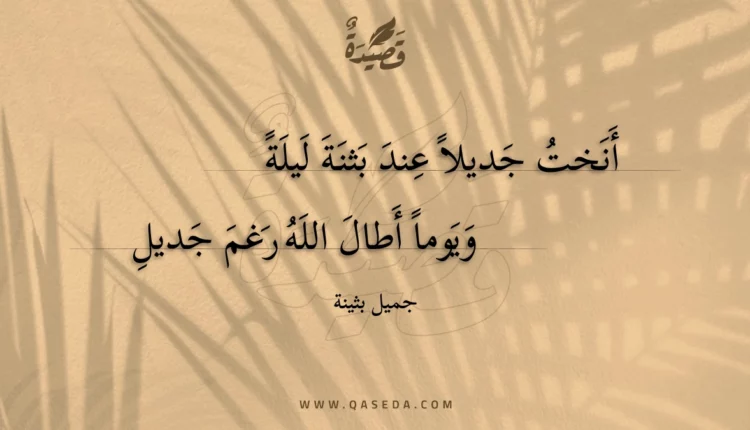 قَصِيدَةٌ
أَنَختُ جَديلاً عِندَ بَثنَةَ لَيلَةً
وَيَوماً أَطالَ اللَهُ رَغمَ جَديلِ
جميل بثينة
WWW.QASEDA.COM